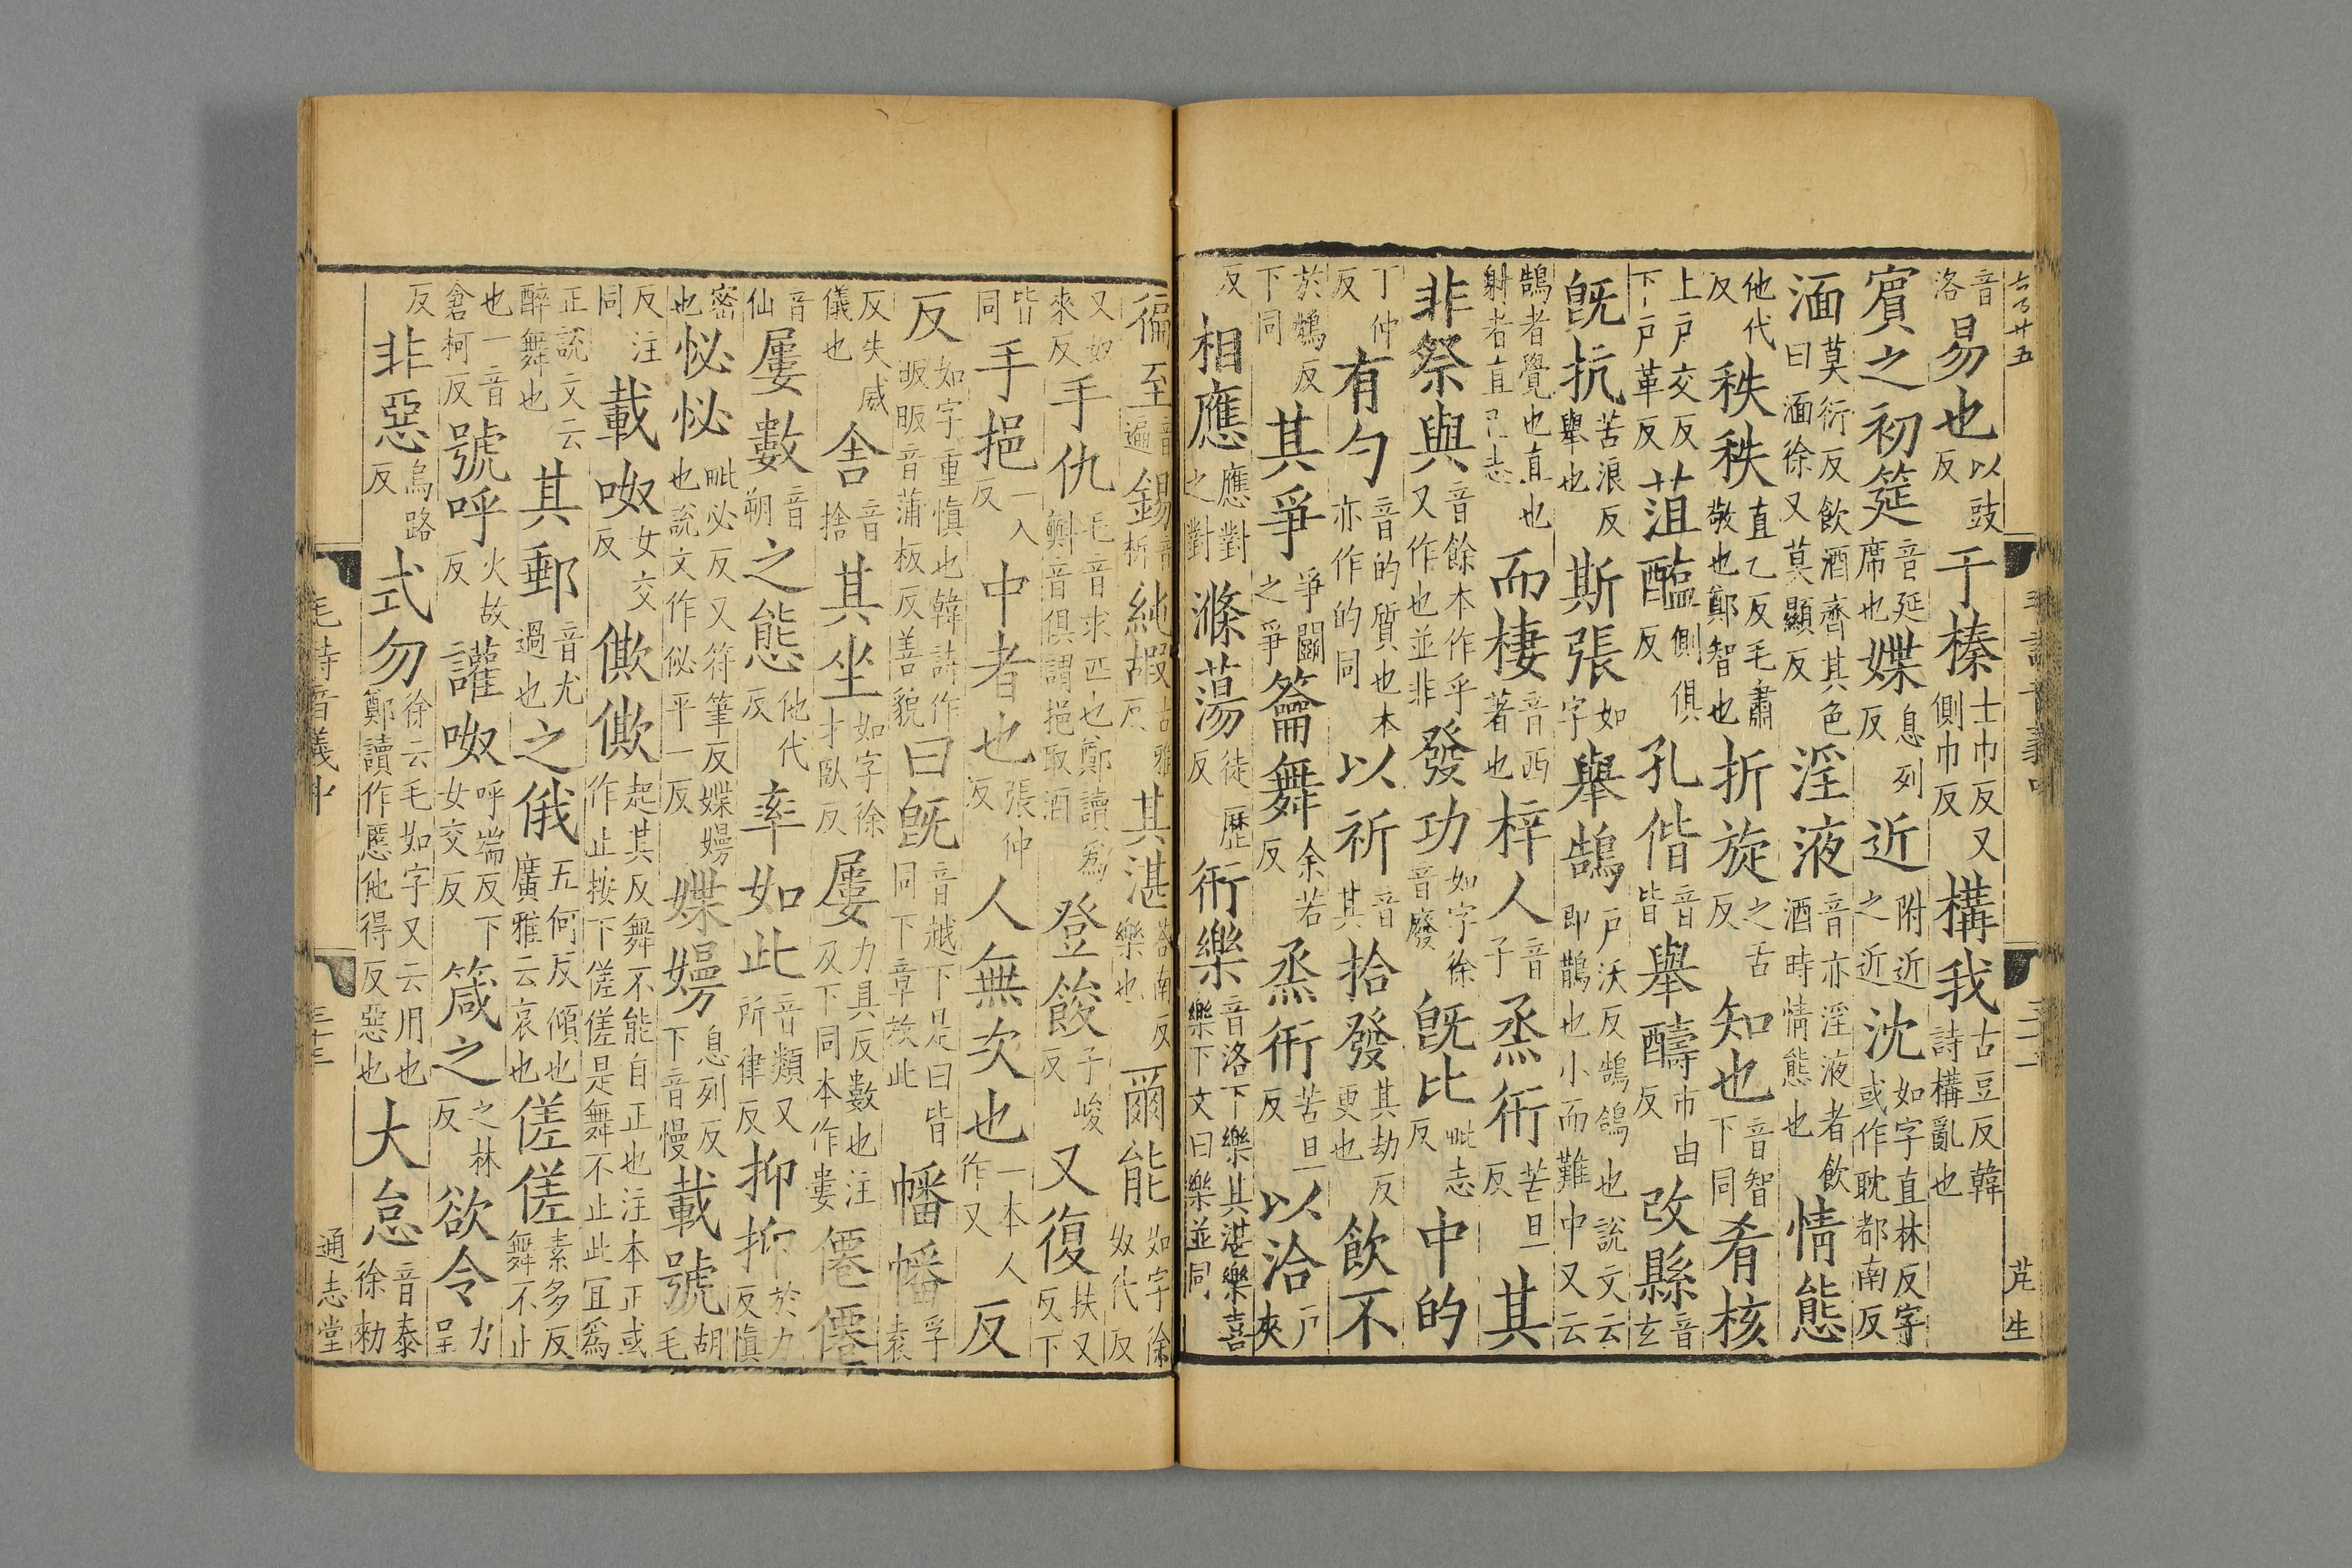 音洛易也以豉反于榛士巾反又側巾反構我古豆反韓詩構亂也
賓之初筵音延席也媟息列反近附近之近沈如字直林反字或作耽都南反
湎莫衍反飲酒齊其色曰湎徐又莫顯反淫液音亦淫液者飲酒時情態也情態
他代反秩秩直乙反毛肅敬也鄭智也折旋之舌反知也音智下同肴核
上戶交反下戶革反菹醢側俱反孔偕音皆舉醻市由反改縣音玄
旣抗苦浪反舉也斯張如字舉鵠戶沃反鵠鴿也說文云即鵲也小而難中又云
鵠者覺也直也射者直己志而棲音西著也梓人音子烝衎苦旦反其
非祭與音餘本作乎又作也並非發功如字徐音廢旣比毗志反中的
丁仲反有勺音的質也本亦作的同以祈音其拾發其劫反更也飲不
於鴆反下同其爭爭鬭之爭籥舞余若反烝衎苦旦反以洽戶夾
反相應應對之對滌蕩徒歷反衎樂音洛下樂其湛樂喜樂下文曰樂並同
徧至音遍錫音析純嘏古雅反其湛荅南反樂也爾能如字徐奴代反
又如來反手仇毛音求匹也鄭讀爲𣂏音俱謂挹取酒登餕子峻反又復扶又反下
皆同手挹一入反中者也張仲反人無次也一本人作又反
反如字重愼也韓詩作昄昄音蒲板反善貌曰旣音越下是曰皆同下章放此幡幡孚袁
反失威儀也舍音捨其坐如字徐才臥反屢力具反數也注及下同本作婁僊僊
音仙屢數音朔之態他代反率如此音類又所律反抑抑於力反愼
密也怭怭毗必反又符筆反媟嫚也說文作佖平一反媟嫚息列反下音慢載號胡毛
反注同載呶女交反僛僛起其反舞不能自正也注本正或作止按下傞傞是舞不止此宜爲
正說文云醉舞也其郵音尤過也之俄五何反傾也廣雅云哀也傞傞素多反舞不止
也一音倉柯反號呼火故反讙呶呼端反下女交反箴之之林反欲令力呈
反非惡烏路反式勿徐云毛如字又云用也鄭讀作慝他得反惡也大怠音泰徐勑
毛詩音義中
三十三
通志堂